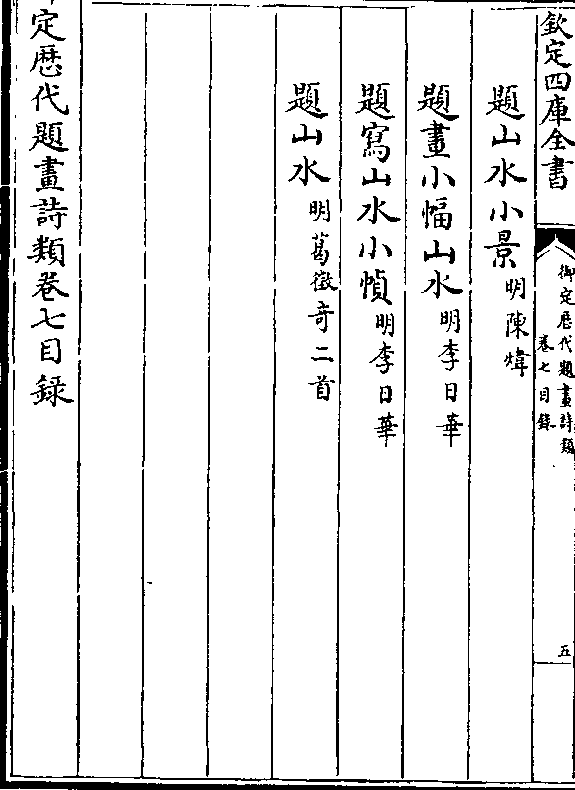 欽定四庫全書
御定歴代題畫詩類
卷七目錄
五
題山水小景明陳煒
題畫小幅山水明李日華
題寫山水小幀明李日華
題山水明葛徵奇二首
定歴代題畫詩類卷七目録